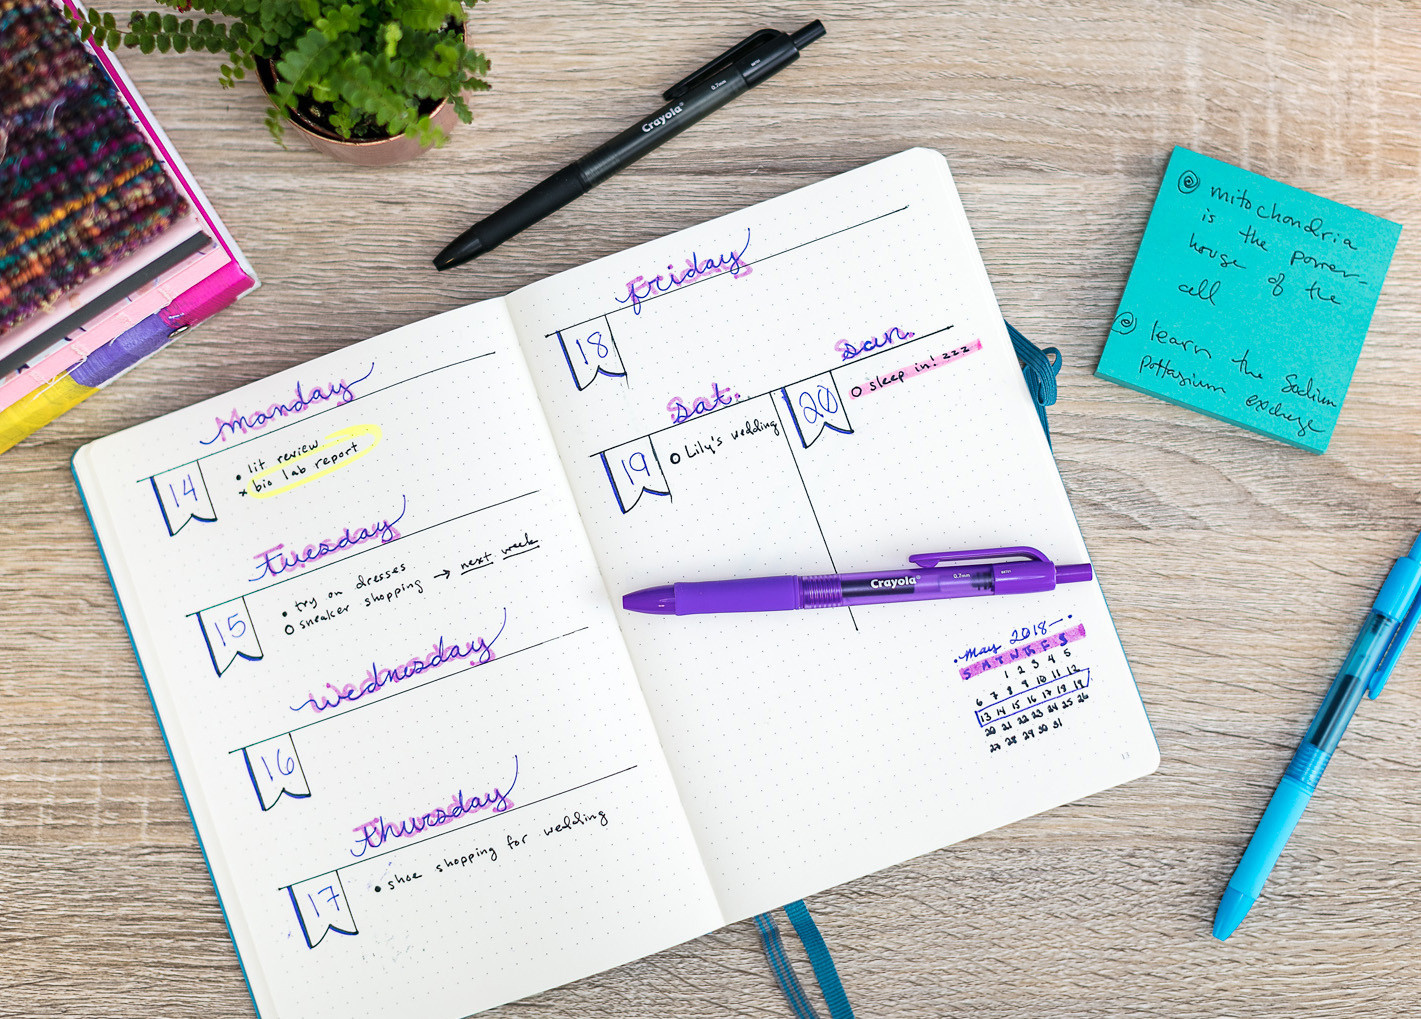 Crayola 0.7mm
monday
14
• lit review
x bio lab report
Tuesday
15
• try on dresses
O sneaker shopping → next week
Wednesday
16
thursday
17
• shoe shopping for wedding
friday
18
sat.
19
O Lily's wedding
sun.
20
O sleep in! zzz
Crayola 0.7mm
May 2018
S M T W Th F S
1 2 3 4 5
6 7 8 9 10 11 12
13 14 15 16 17 18 19
20 21 22 23 24 25 26
27 28 29 30 31
13
mitochondria
is the power-
house of the
cell
learn the Sodium
pottasium exchnge